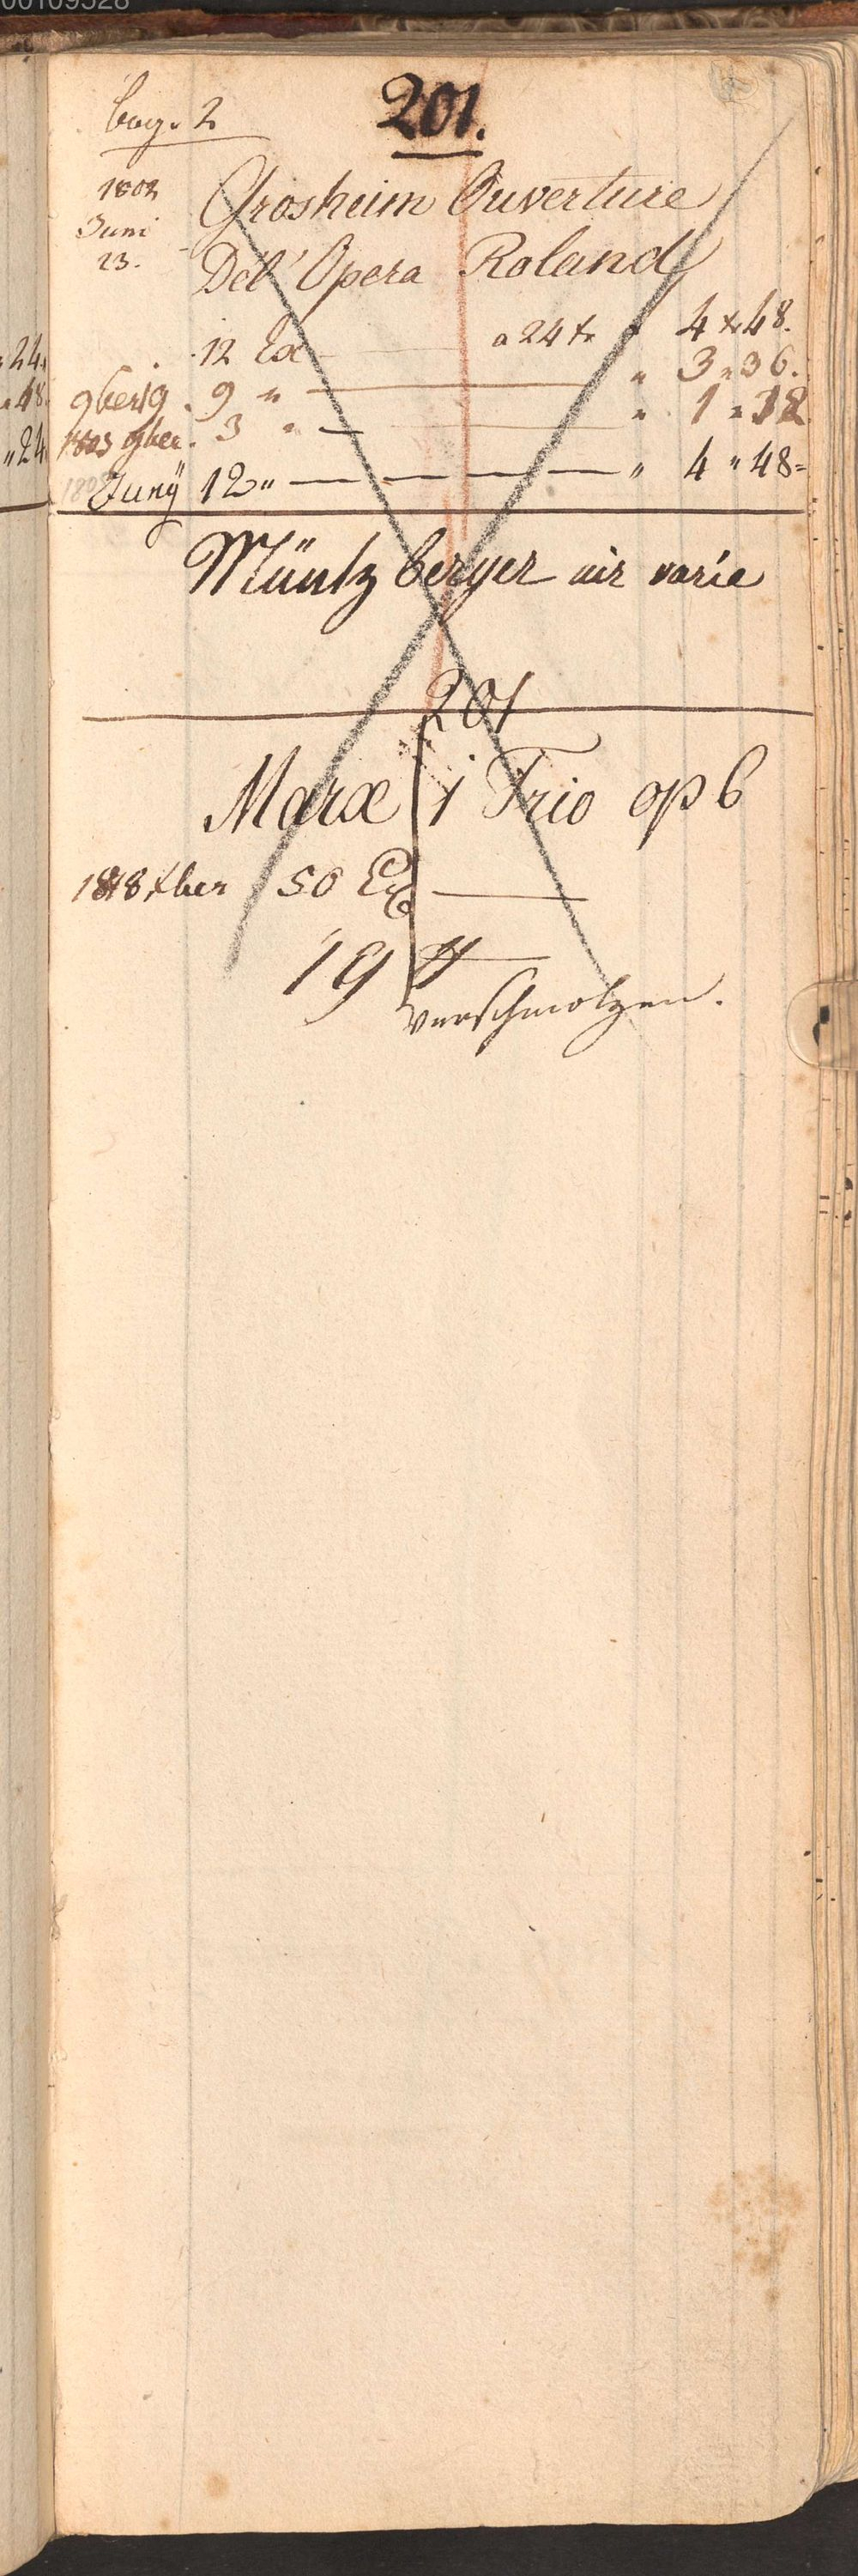 00109528
bog. 2
201.
1802
Juni
23.
Grosheim Ouverture
Del' Opera Roland
12 Ex a 24 x " 4 x 48.
9beri9. 9 " " 3 " 36.
1803 9ber. 3 " " 1 " 12
Junÿ 12 " " 4 " 48 =
" 24
" 48
" 24
Müntzberger air varie
201
Marx 1 Trio op 6
1818 xber 50 Ex
19 "
verschmolzen.